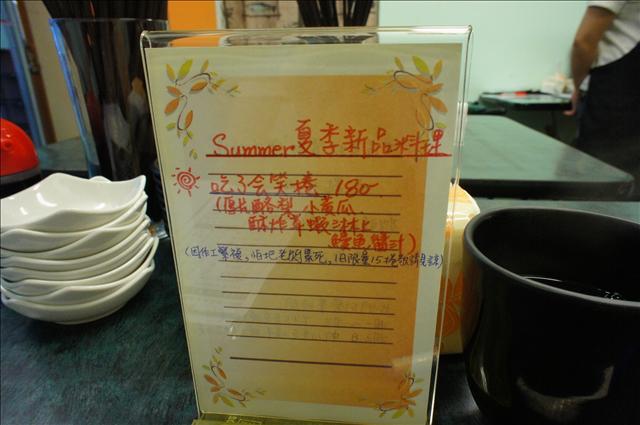 Summer 夏季新品料理
吃了会笑捲 180-
(厚片酪梨 小黃瓜
酥炸草蝦沐上
鰻魚醬汁)
(因作工繁複,怕把老闆累死,1日限量15捲敬請見諒)